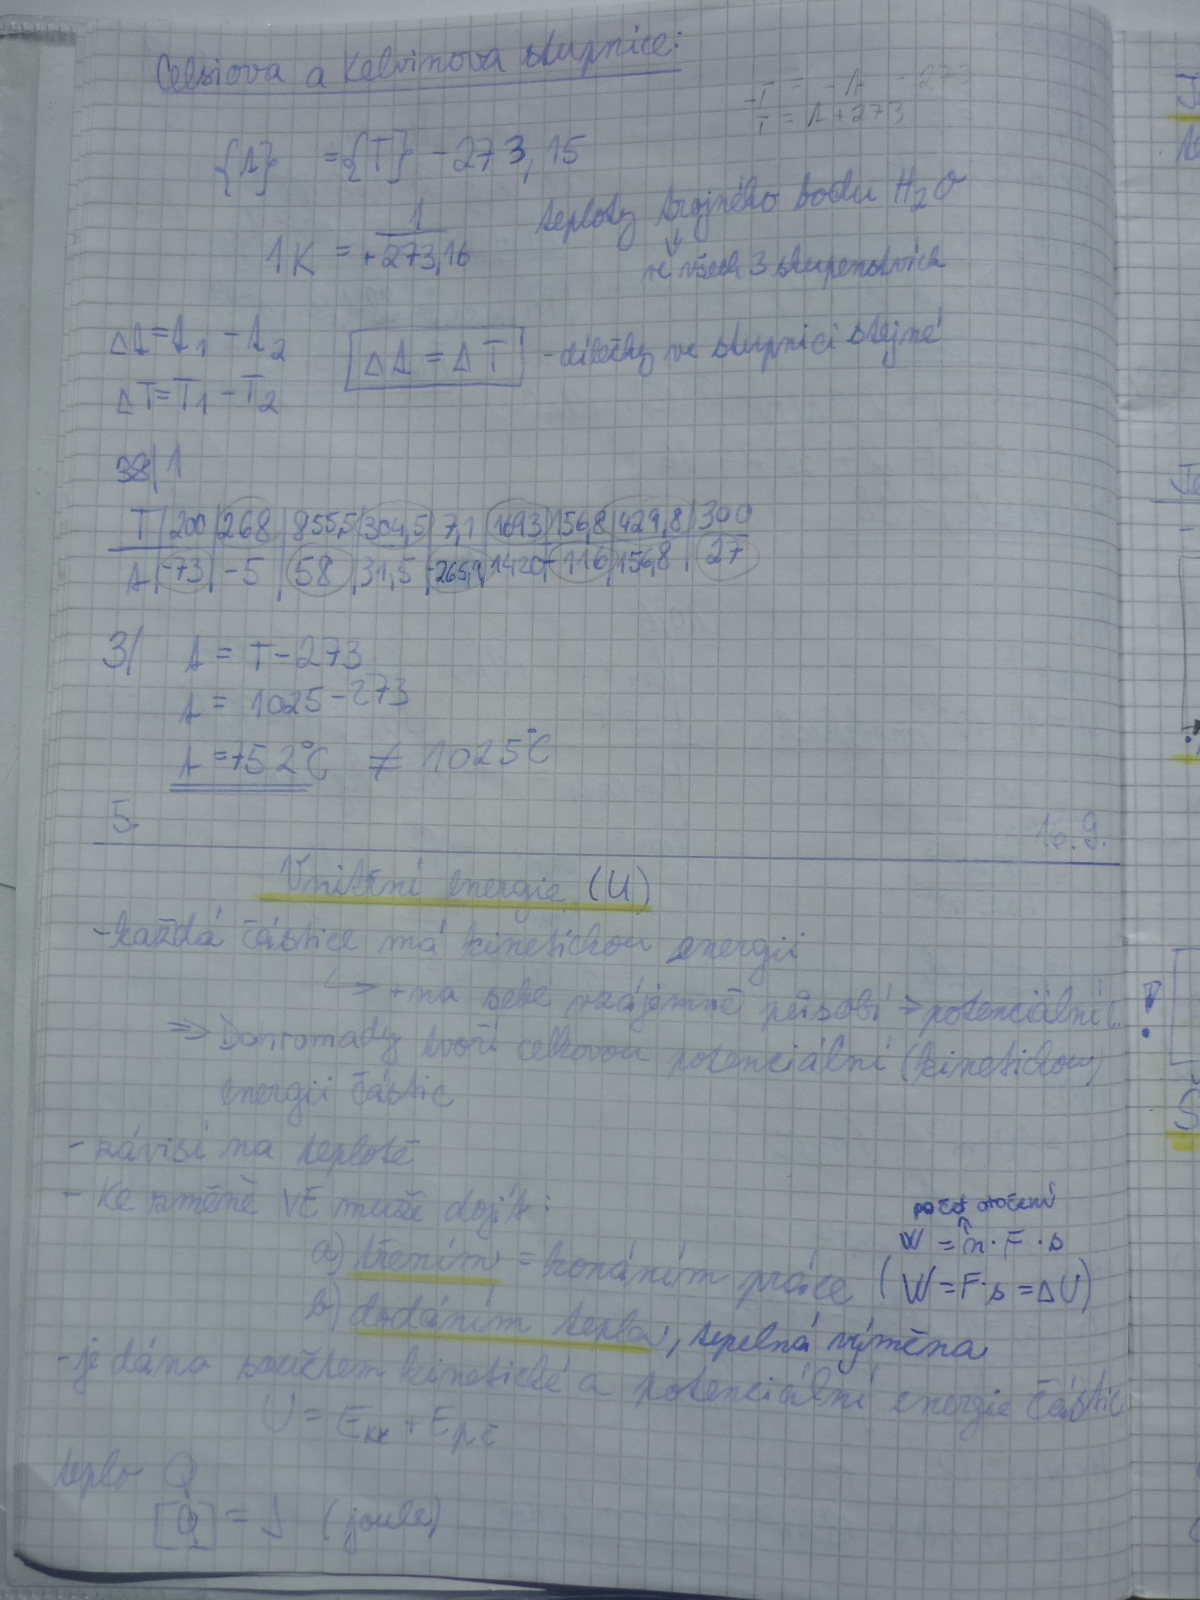 Celsiova a Kelvinova stupnice:
-T = -t 273
T = t + 273
{t} = {T} - 273,15
1K = 1/273,16 teploty trojného bodu H2O
↓
ve všech 3 skupenstvích
Δt = t1 - t2
ΔT = T1 - T2
Δt = ΔT - dílečky ve stupnici stejné
38/1
T | 200 | 268 | 855,5 | 304,5 | 7,1 | 1693 | 156,8 | 429,8 | 300
t | -73 | -5 | 58 | 31,5 | -265,9 | 1420 | -116 | 156,8 | 27
3/ t = T - 273
t = 1025 - 273
t = 752°C ≠ 1025°C
5.
16.9.
Vnitřní energie (U)
- každá částice má kinetickou energii
↳ + na sebe vzájemně působí => potenciální
=> Dohromady tvoří celkovou potenciální (kinetickou)
energii částic
- závisí na teplotě
- Ke změně VE muže dojít:
počet otočení
↑
W = n · F · s
a) třením = konáním práce (W = F · s = ΔU)
b) dodáním tepla, tepelná výměna
- je dána součtem kinetické a potenciální energie částic
teplo Q
[Q] = J (joule)